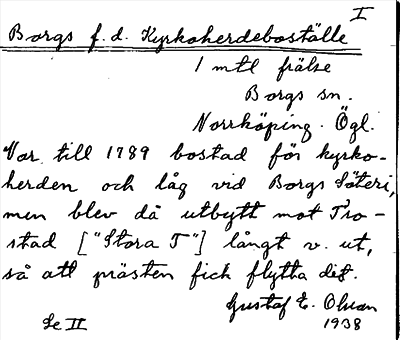 I
Borgs f.d. Kyrkoherdeboställe
1 mtl frälse
Borgs sn.
Norrköping. Ögl.
Var till 1789 bostad för kyrko-
herden och låg vid Borgs Säteri,
men blev då utbytt mot Tro-
stad ["Stora T"] långt v. ut,
så att prästen fick flytta dit.
Gustaf E. Olsson
Se II 1938